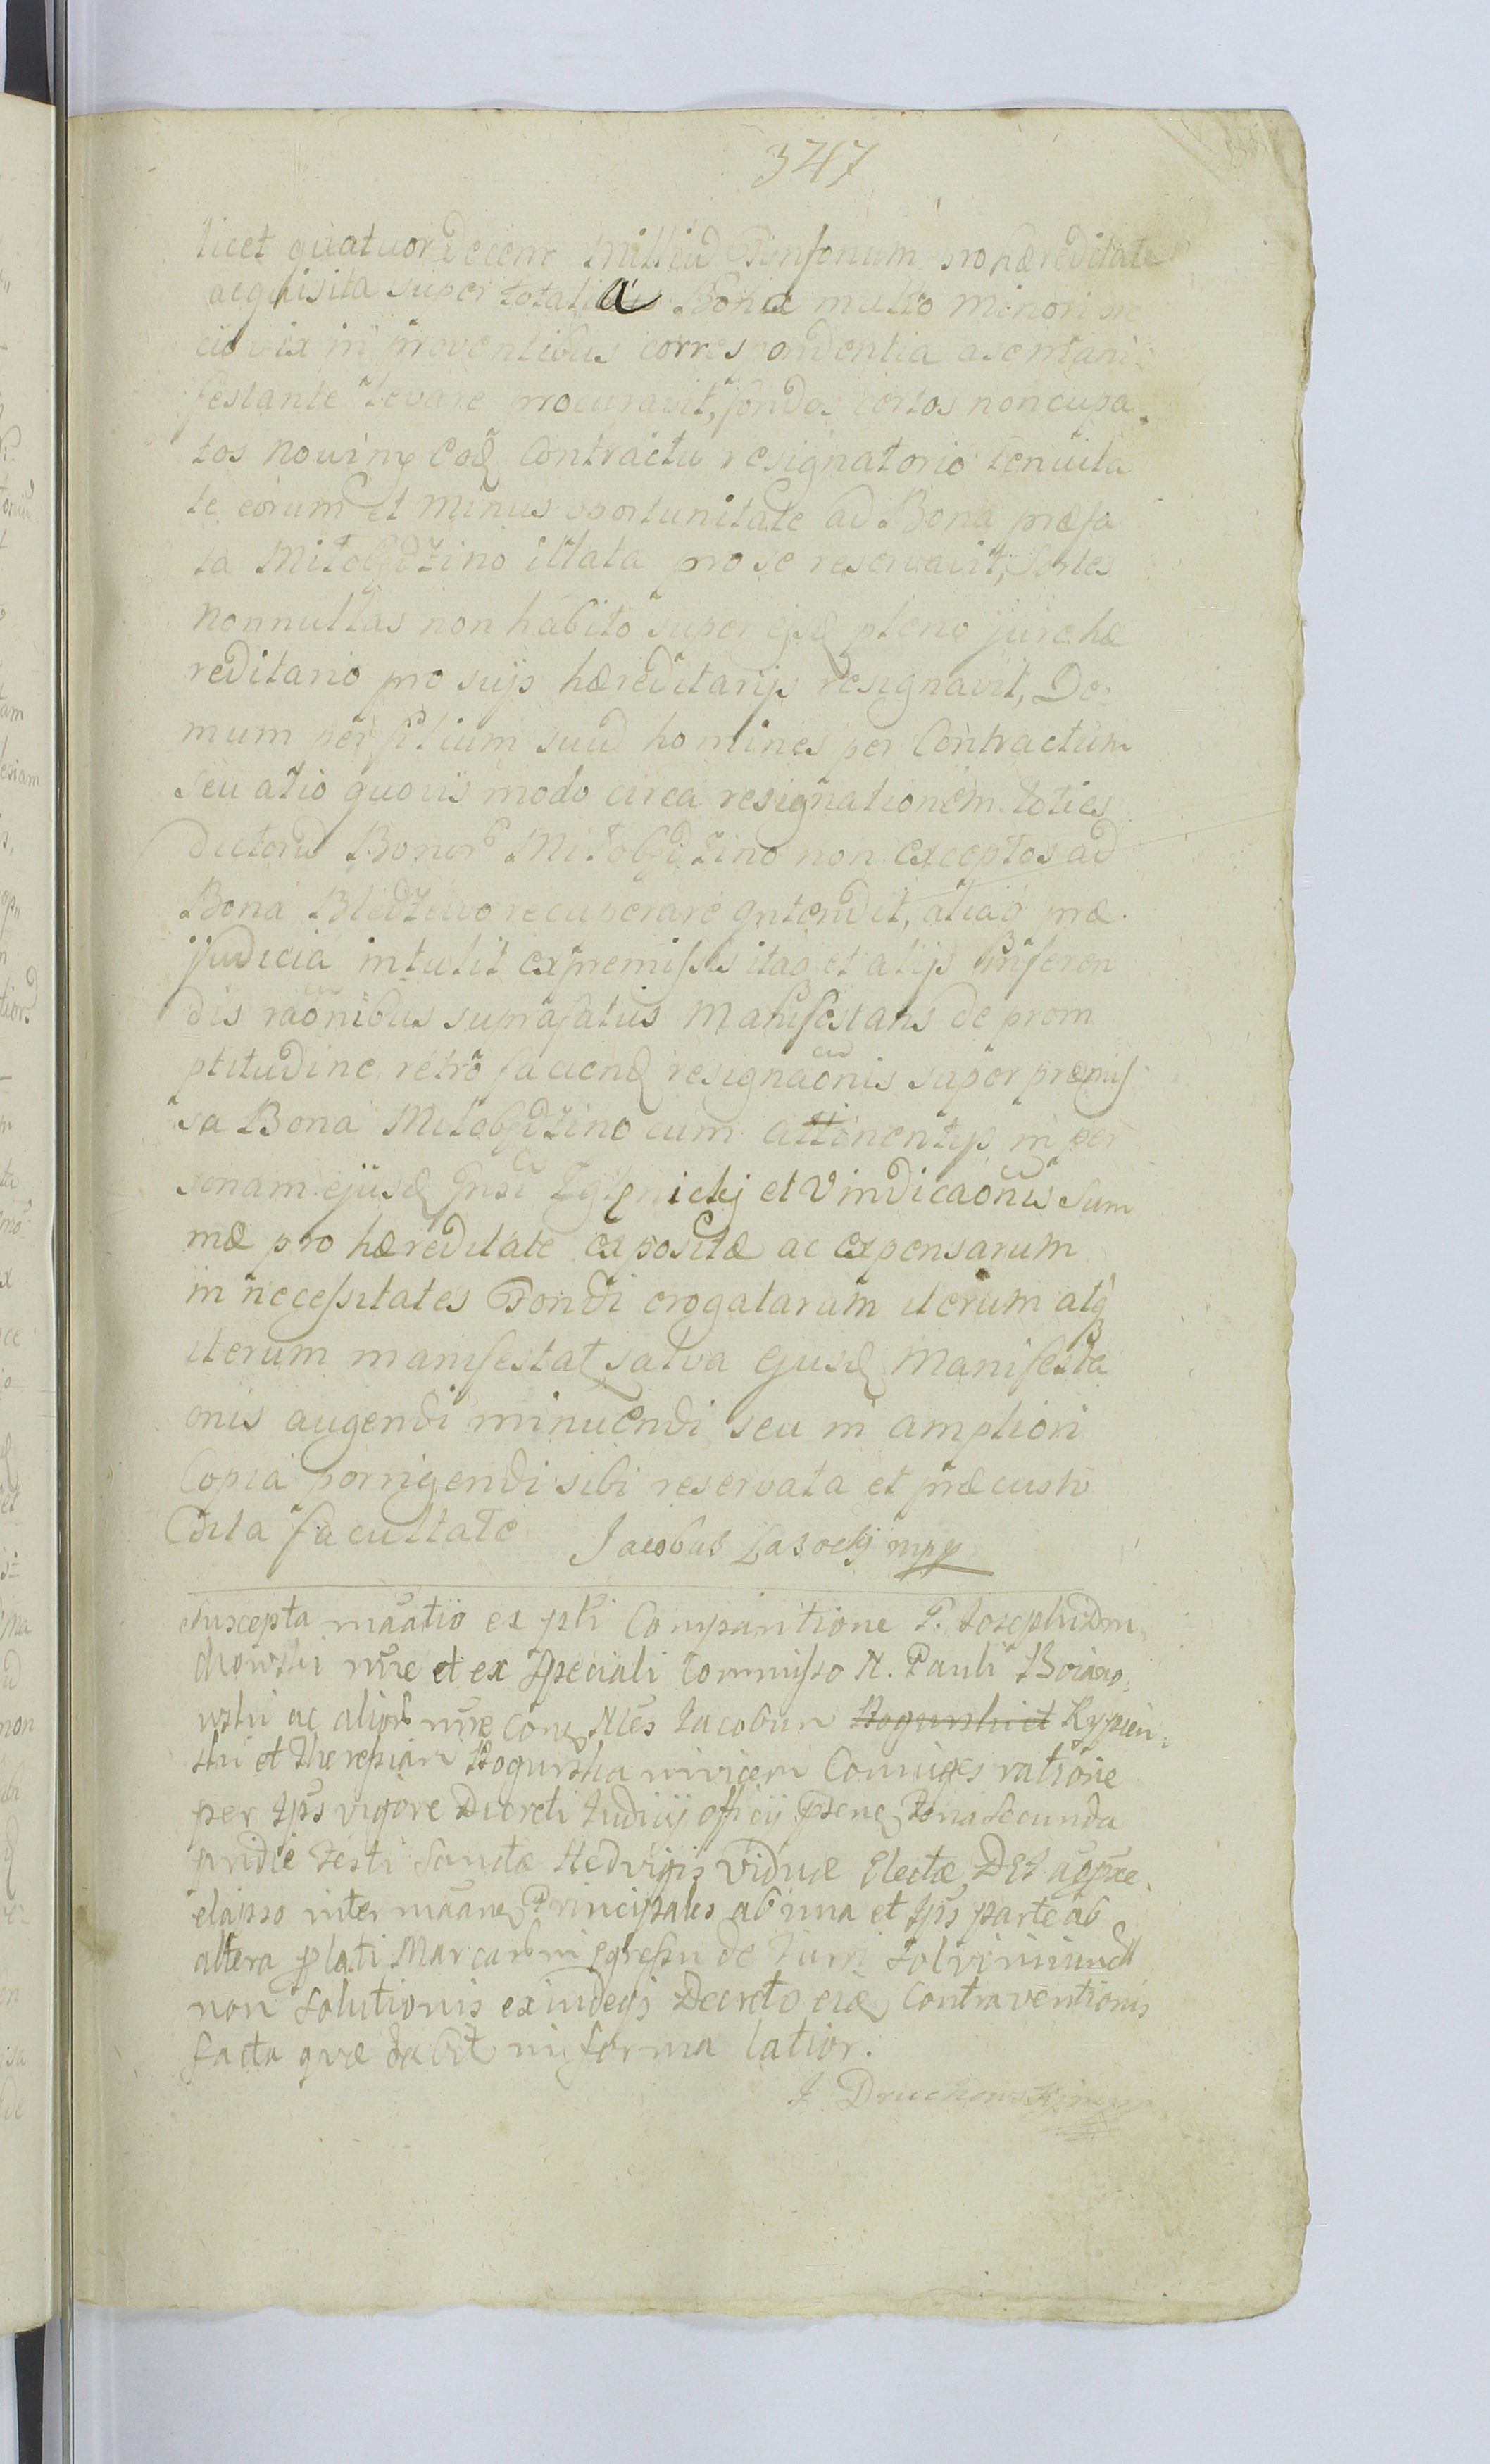 347
licet quatuor decem Milliu Tinfonum pro hæreditate
acquisita super totalia Bona multo minori pre
cio vix in proventibus correspondentia a se mani
festante levare procuravit, fundos certos noncupa
tos Eod Contractu resignatorio tenuita
te eorum et minus oportunitate ad Bona præfa
ta Miłobędzino illata pro se reservavit, Sortes
nonnullas non habito super ejsd pleno jure hæ
reditario pro suijs hæreditarijs resignavit, Do:
mum per filium suu homines per Contractum
seu alio quovis modo circa resignationem toties
dictoru Bonor Miłobędzino non exceptos ad
Bona Bledzewo recuperare intendit, aliaq præ
judicia intulit ex premissis itaq et alijs inferen
dis raonibus suprafatus Manifestans de prom
ptitudine retro faciend resignaonis super præmis
sa Bona Miłobędzino cum attinentijs in per
sonam ejusd Gnsi et Vindicaonis Sum
mæ pro hæreditate expositæ ac expensarum
in necessitates Fondi erogatarum iterum atq
iterum manifestat salva Ejusd Manifesta
onis augendi minuendi seu in ampliori
Copia porrigendi sibi reservata et præcusto
dita facultate Jacobus Lasockj mpp
Suscepta maatio ex pti Comparitione G. Josephi Dru
chowski nre et ex Speciali Commisso N. Pauli
wski ac alior nre Jacobum Rogurski et Kypień
ski et Theresiam Rogurska invicem Coniuges ratione
per Ips vigore Decreti Judicij officij Psenc feria secunda
pridie Festi Sanctæ Hedvigis Viduæ Electæ DEI
elapso inter Principales ab una et Ips parte ab
altera lati Marcarum in Egressu de Turri
non Solutionis Decreto Contraventionis
facta quæ dabit in forma latior.
J Druchowski mpp